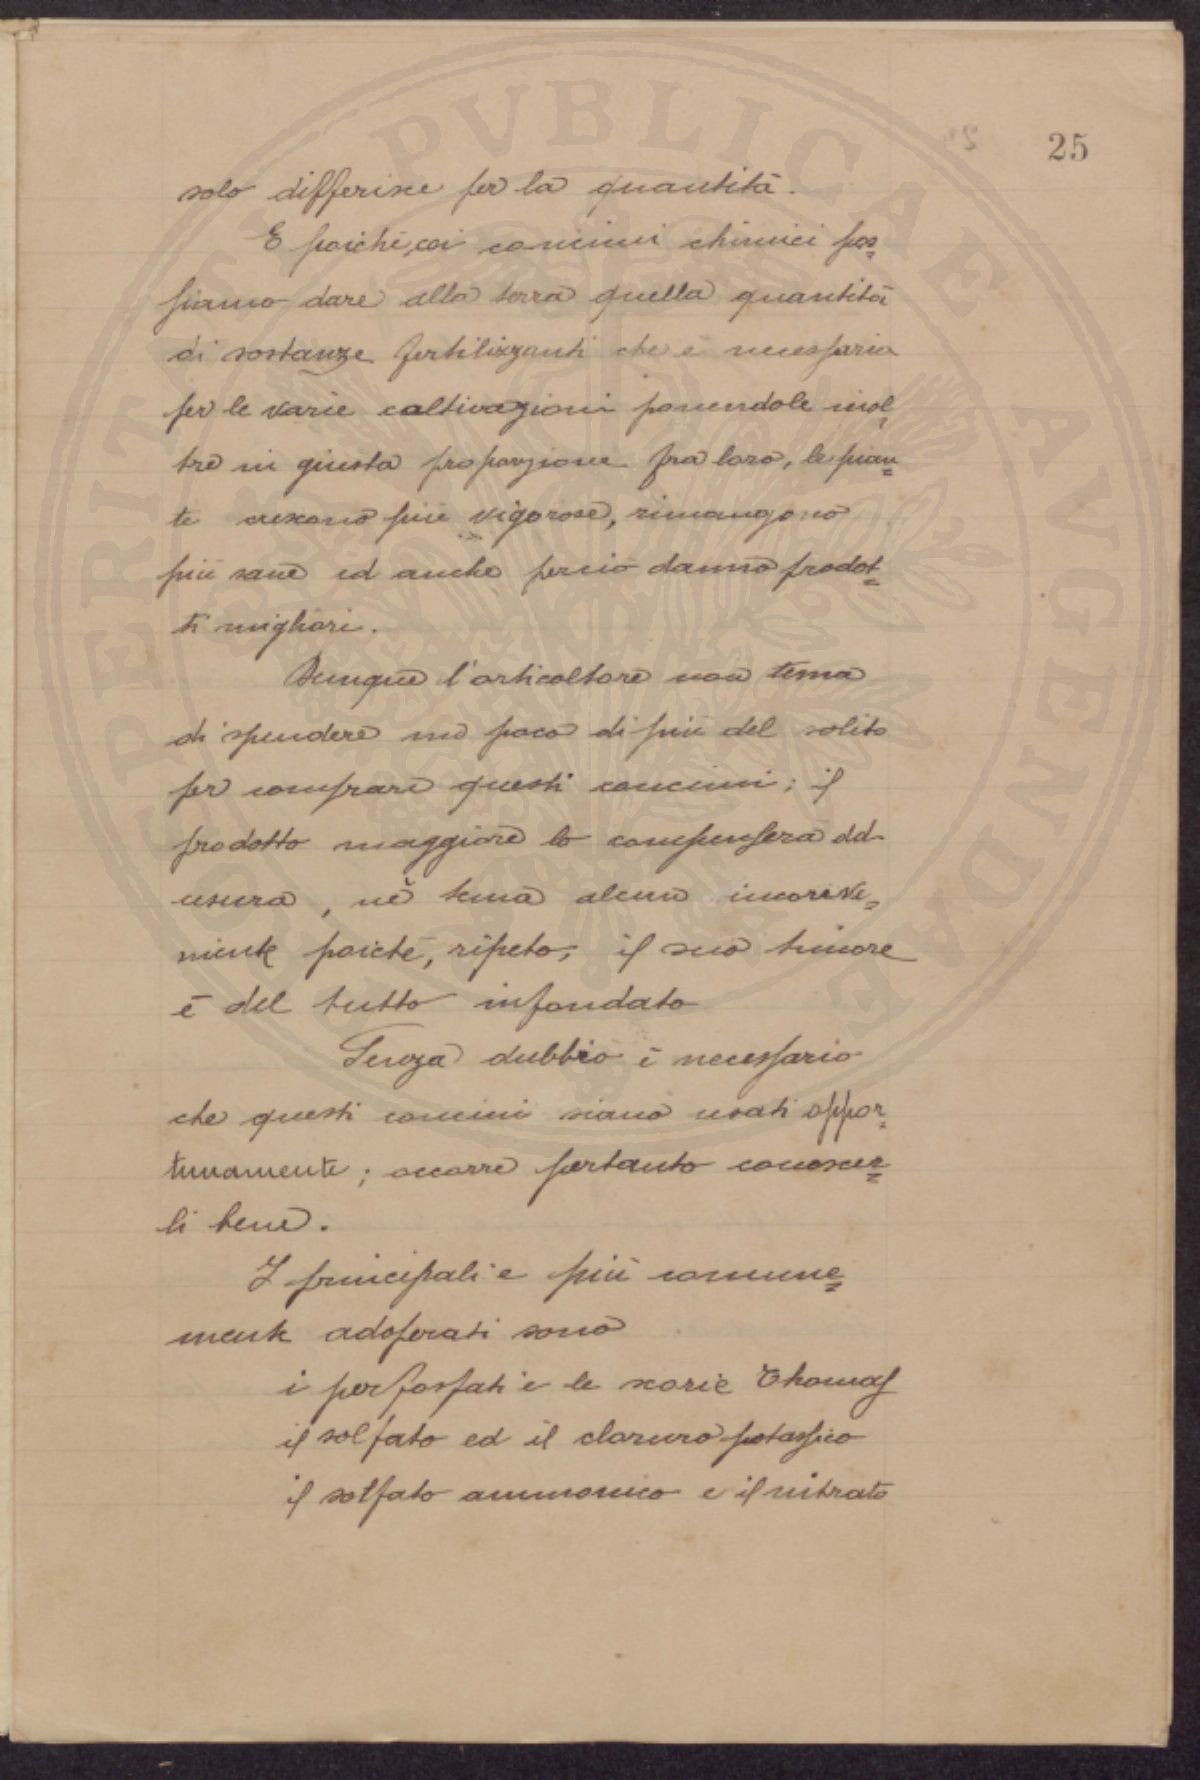 PROSPERITATI PVBLICAE AVGENDAE
25
solo differisce per la quantità.
E poichè, coi concimi chimici pos=
siamo dare alla terra quella quantità
di sostanze fertilizzanti che è necessaria
per le varie coltivazioni ponendole inol=
tre in giusta proporzione fra loro, le pian=
te crescono più vigorose, rimangono
più sane ed anche perciò danno prodot=
ti migliori.
Dunque l'orticoltore non tema
di spendere un poco di più del solito
per comprare questi concimi; il
prodotto maggiore lo compenserà ad
usura, nè tema alcun inconve=
niente poichè, ripeto, il suo timore
è del tutto infondato
Senza dubbio è necessario
che questi concimi siano usati oppor=
tunamente; occorre pertanto conoscer=
li bene.
I principali e più comune=
mente adoperati sono
i perfosfati e le scorie Thomas
il solfato ed il cloruro potassico
il solfato ammonico e il nitrato